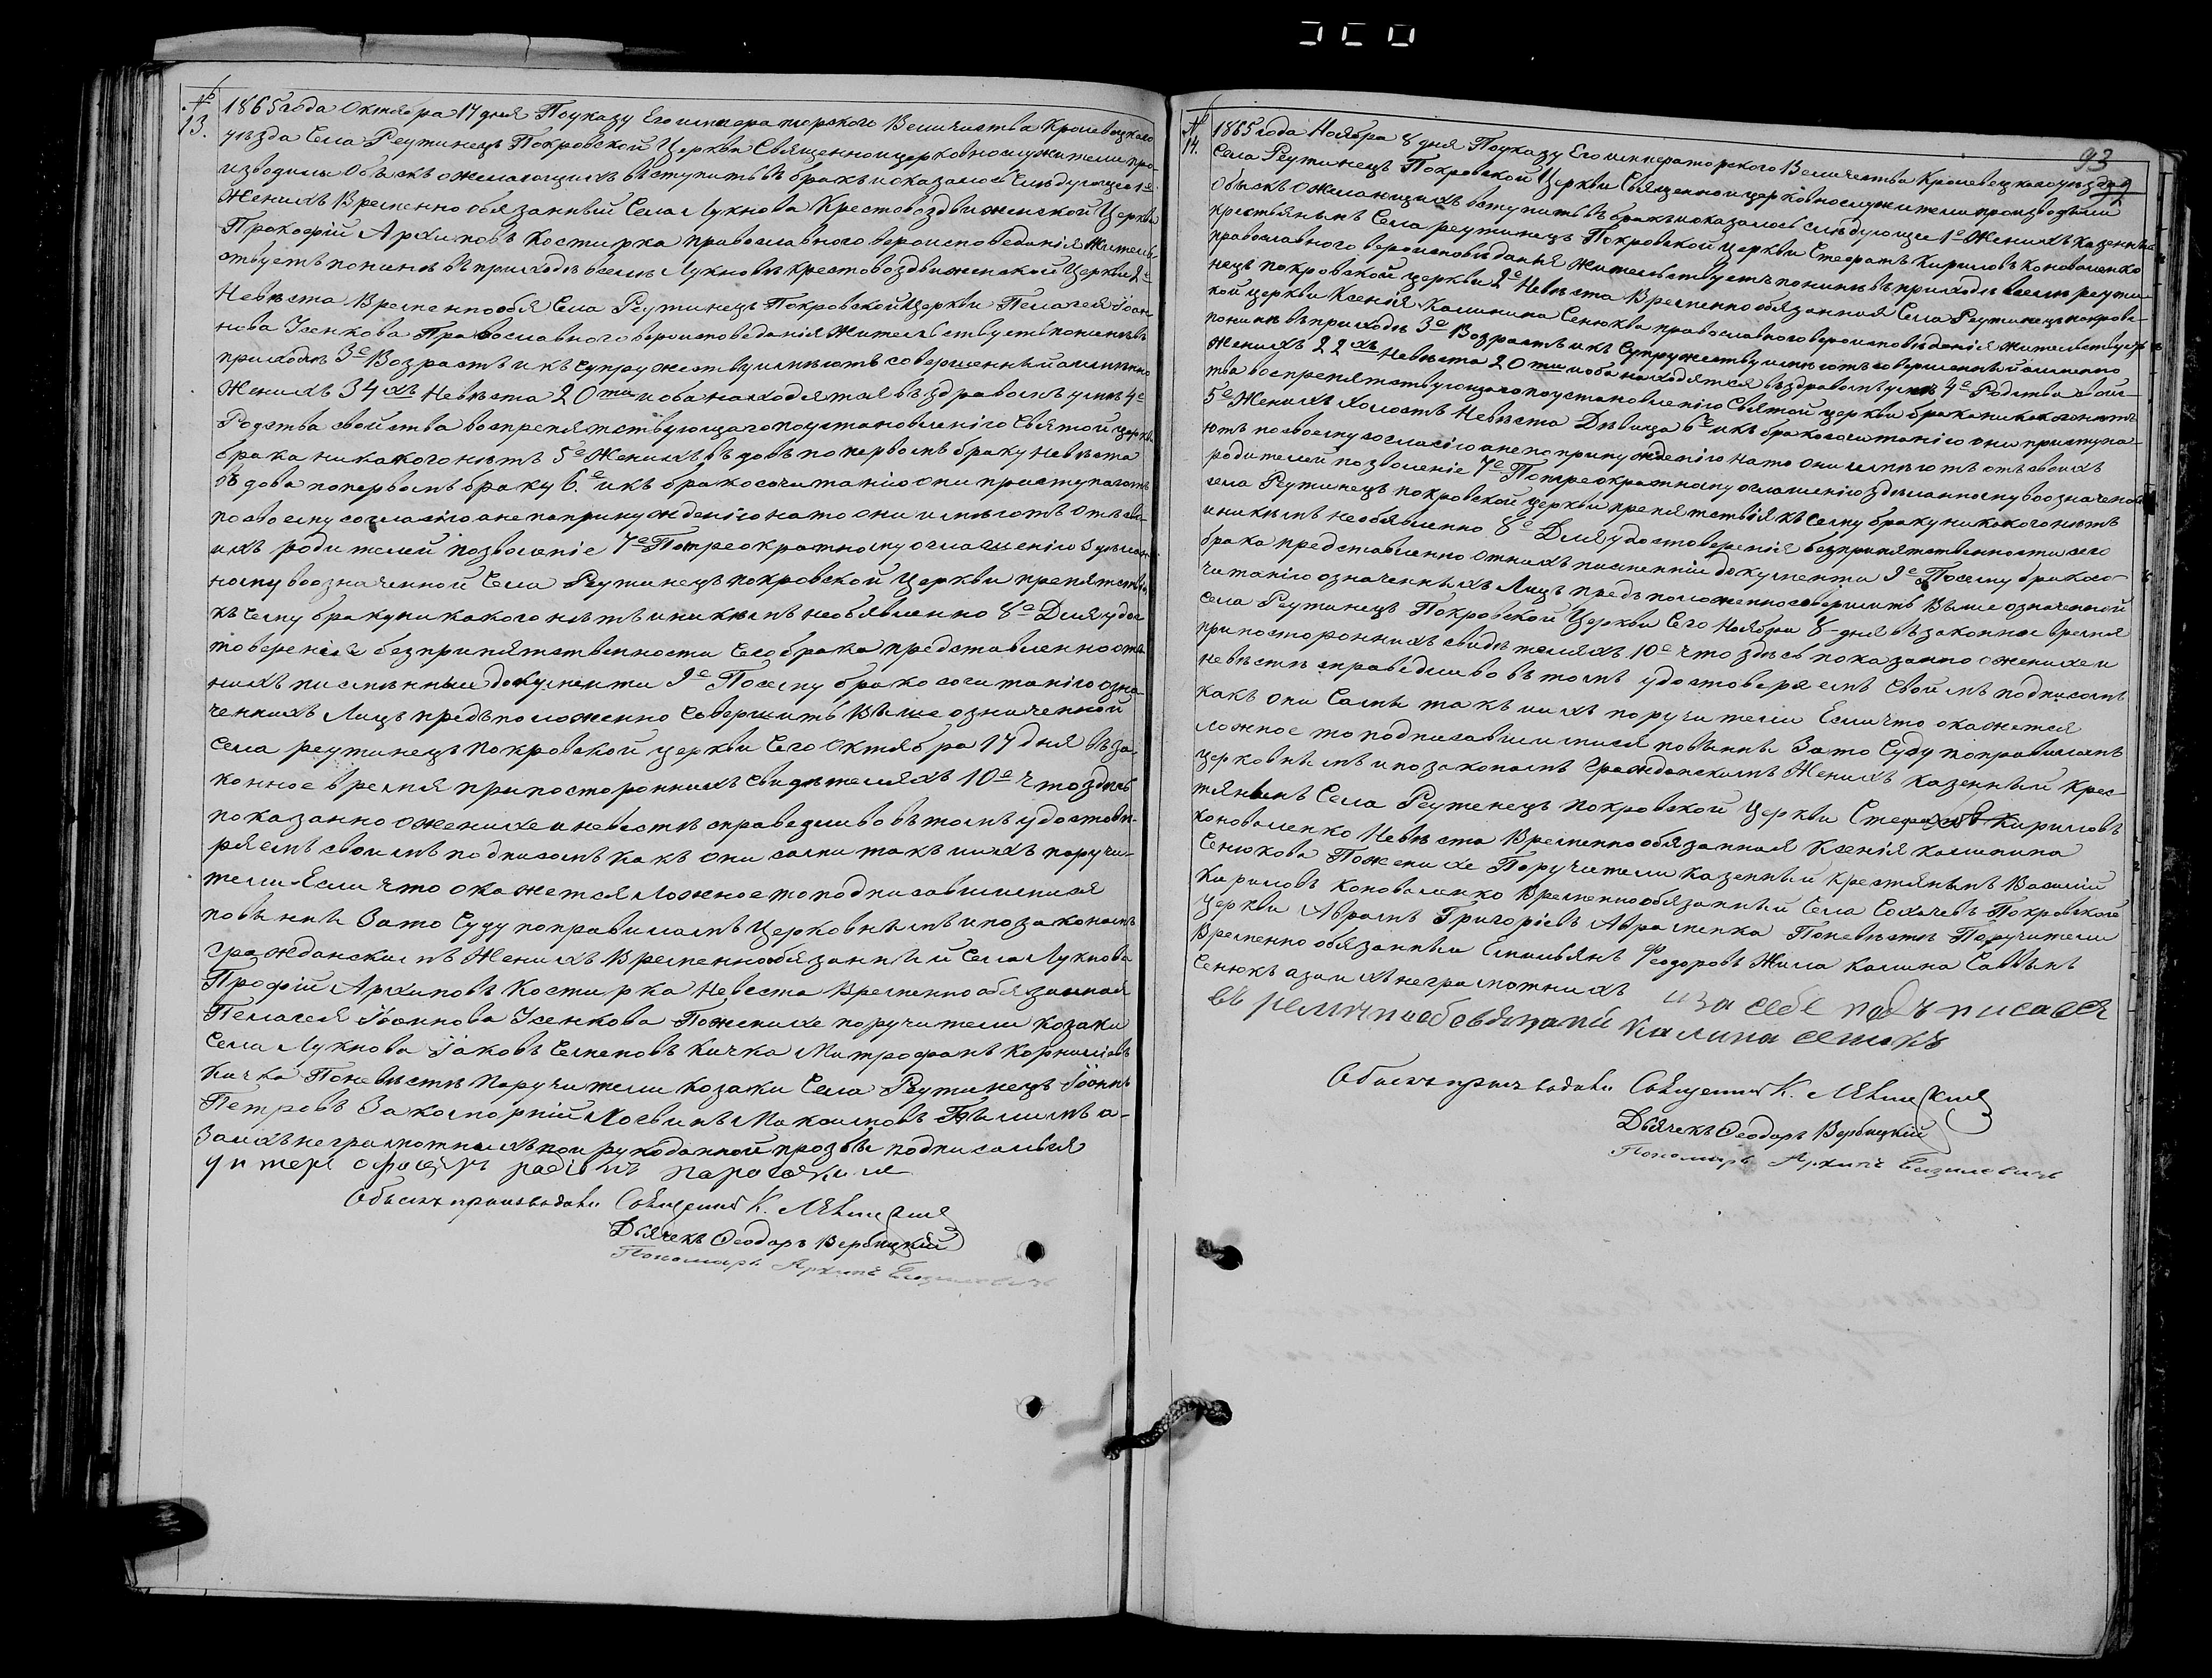 № 13.
1865 года Октября 17 дня По указу Его императорского Величества Кролевецкаго
уѣзда Села Реутинецъ Покровской Церкви Священноицерковнослужители про-
изводили Обыскъ ожелающихъ вступить въ бракъ иоказалось Слѣдующее 1е
Женихъ Временно обязанный Села Лукнова Крестовоздвиженской Церкви
Прокофій Архиповъ Костирка православного вероисповеданія Житель-
ствуетъ понинѣ въ приходѣ села Лукнова крестовоздвиженской Церкви 2е
Невѣста Временнообя Села Реутинецъ Покровской Церкви Пелагея Іоан-
нова Усенкова Православного вероисповеданія Жительствуетъ понинѣ въ
приходѣ 3е Возрастъ икъ Супружеству имѣютъ совершенный аименно
Женихъ 34хъ Невѣста 20ти иоба находятся въ здравомъ умѣ 4е
Родства свойства воспрепятствующаго поустановленію Святой церкви
брака никакого нѣтъ 5е Женихъ вдовъ поперво­мъ браку Невѣста
вдова попервомъ браку 6е икъ бракосочитанію они приступаютъ
посвоему согласію ане попринуждению нато они имѣютъ отъ сво-
ихъ родителей позволеніе 7е Потреократному оглашенію зделан-
ному воозначенной Села Реутинецъ покровской Церкви препятствія
къ сему браку никакого нѣтъ иникѣмъ необявленно 8е Для удос-
товеренія безприпятственности Сего брака представленно отъ
нихъ писмѣнные документи 9е Посему бракосочитанію озна-
ченнихъ Лицъ предположенно Совершить Више означенной
Села реутинецъ покровской церкви Сего Октября 17 дня въ за-
конное время припостороннихъ свидѣтеляхъ 10е Что здѣсь
показанно оженихе иневестѣ справедливо въ томъ удостове-
ряемъ своимъ подписомъ какъ они сами такъ иихъ поручи-
тели Если что окажется Ложное то подписавшимися
повѣнни Зато Суду поправиламъ Церковнымъ ипозаконамъ
гражданскимъ Женихъ Временнообязанный Села Лукнова
Профій Архиповъ Костирка Невеста Временно обязанная
Пелагея Іоаннова Усенкова Пожениxе поручители козаки
Села Лукнова Іаковъ Семеновъ Кичка Митрофанъ Корниліевъ
Кичка Поневѣстѣ Поручители козаки Села Реутинецъ Іоаннъ
Петровъ Закоморній Логвинъ Максимовъ а-
заихъ неграмотнихъ порукоданной прозбы подписался
унтеръ офицеръ
Обыскъ производили Священникъ К. Левицкій
Дьячекъ Ѳеодоръ Вербицкій
Пономарь Архипъ Базилевичъ
93
№ 14.
1865 года Ноября 8 дня По указу Его императорского Величества Кролевецкаго уѣзда
Села Реутинецъ Покровской Церкви Священноицерковнослужители производили
Обыскъ Ожелающихъ вступить въ бракъ иоказалось слѣдующее 1е Женихъ казенный
крестьянинъ Села реутинецъ Покровской церкви Стефанъ Кириловъ Коноваленко
православного вероисповѣданія Жительствуетъ понинѣ въ приходѣ села реути-
нецъ покровской церкви 2е Невѣста Временно обязанная Села Реутинецъ покров-
кой церкви Ксенія Калинина Сенюкова православного вероисповѣданія жительствуетъ
понинѣ въ приходѣ 3е Возрастъ икъ Супружеству имѣютъ совершенный аименно
Женихъ 22хъ Невѣста 20ти иоба находятся въ здравомъ умѣ 4е Родства свой-
тва воспрепятствующаго поустановленію Святой церкви брака никакого нѣтъ
5е Женихъ Холостъ Невѣста Дѣвица 6е икъ бракосочитанію они приступа-
ютъ посвоему согласію ане попринужденію нато они имѣютъ отъ своихъ
родителей позволеніе 7е Потреократному оглашенію зделанному воозначеной
села Реутинецъ покровской церкви препятствія къ сему браку никакого нѣтъ
иникѣмъ необявленно 8е Для удостоверенія безприпятственности сего
брака представленно отнихъ писменніи документи 9е Посему бракосо-
читанію означенныхъ Лицъ предположенно совершить Више означенной
Села Реутинецъ Покровской Церкви Сего Ноября 8 дня въ законное время
припостороннихъ свидѣтеляхъ 10е что здѣсь показанно оженихе и
невѣстѣ справедливо въ томъ удостоверяемъ Своимъ подписомъ
какъ они Сами такъ иихъ поручители Если что окажется
ложное то подписавшимися повѣнны Зато Суду поправиламъ
церковнымъ ипозаконамъ Гражданскимъ Женихъ казенный крес-
тянынъ Села Реутенецъ Покровской Церкви Стефанъ Кириловъ
Коноваленко Невѣста Временнообязанная Ксенія Калинина
Сенюкова Пожениxе Поручители казенный крестянынъ Василій
Кириловъ Коноваленко Временнообязанный Села Сохачевъ Покровской
Церкви Аврамъ Григоріевъ Авраменка Поневѣстѣ Поручители
Временно обязанныи Емильянъ Ѳеодоровъ Жила Калина Савынъ
Сенюкъ азаихъ неграмотнихъ иза себе подъписался
Калина сенюкъ
Обыскъ производили Священникъ К. Левицкій
Дьячекъ Ѳеодоръ Вербицкій
Пономарь Архипъ Базилевичъ